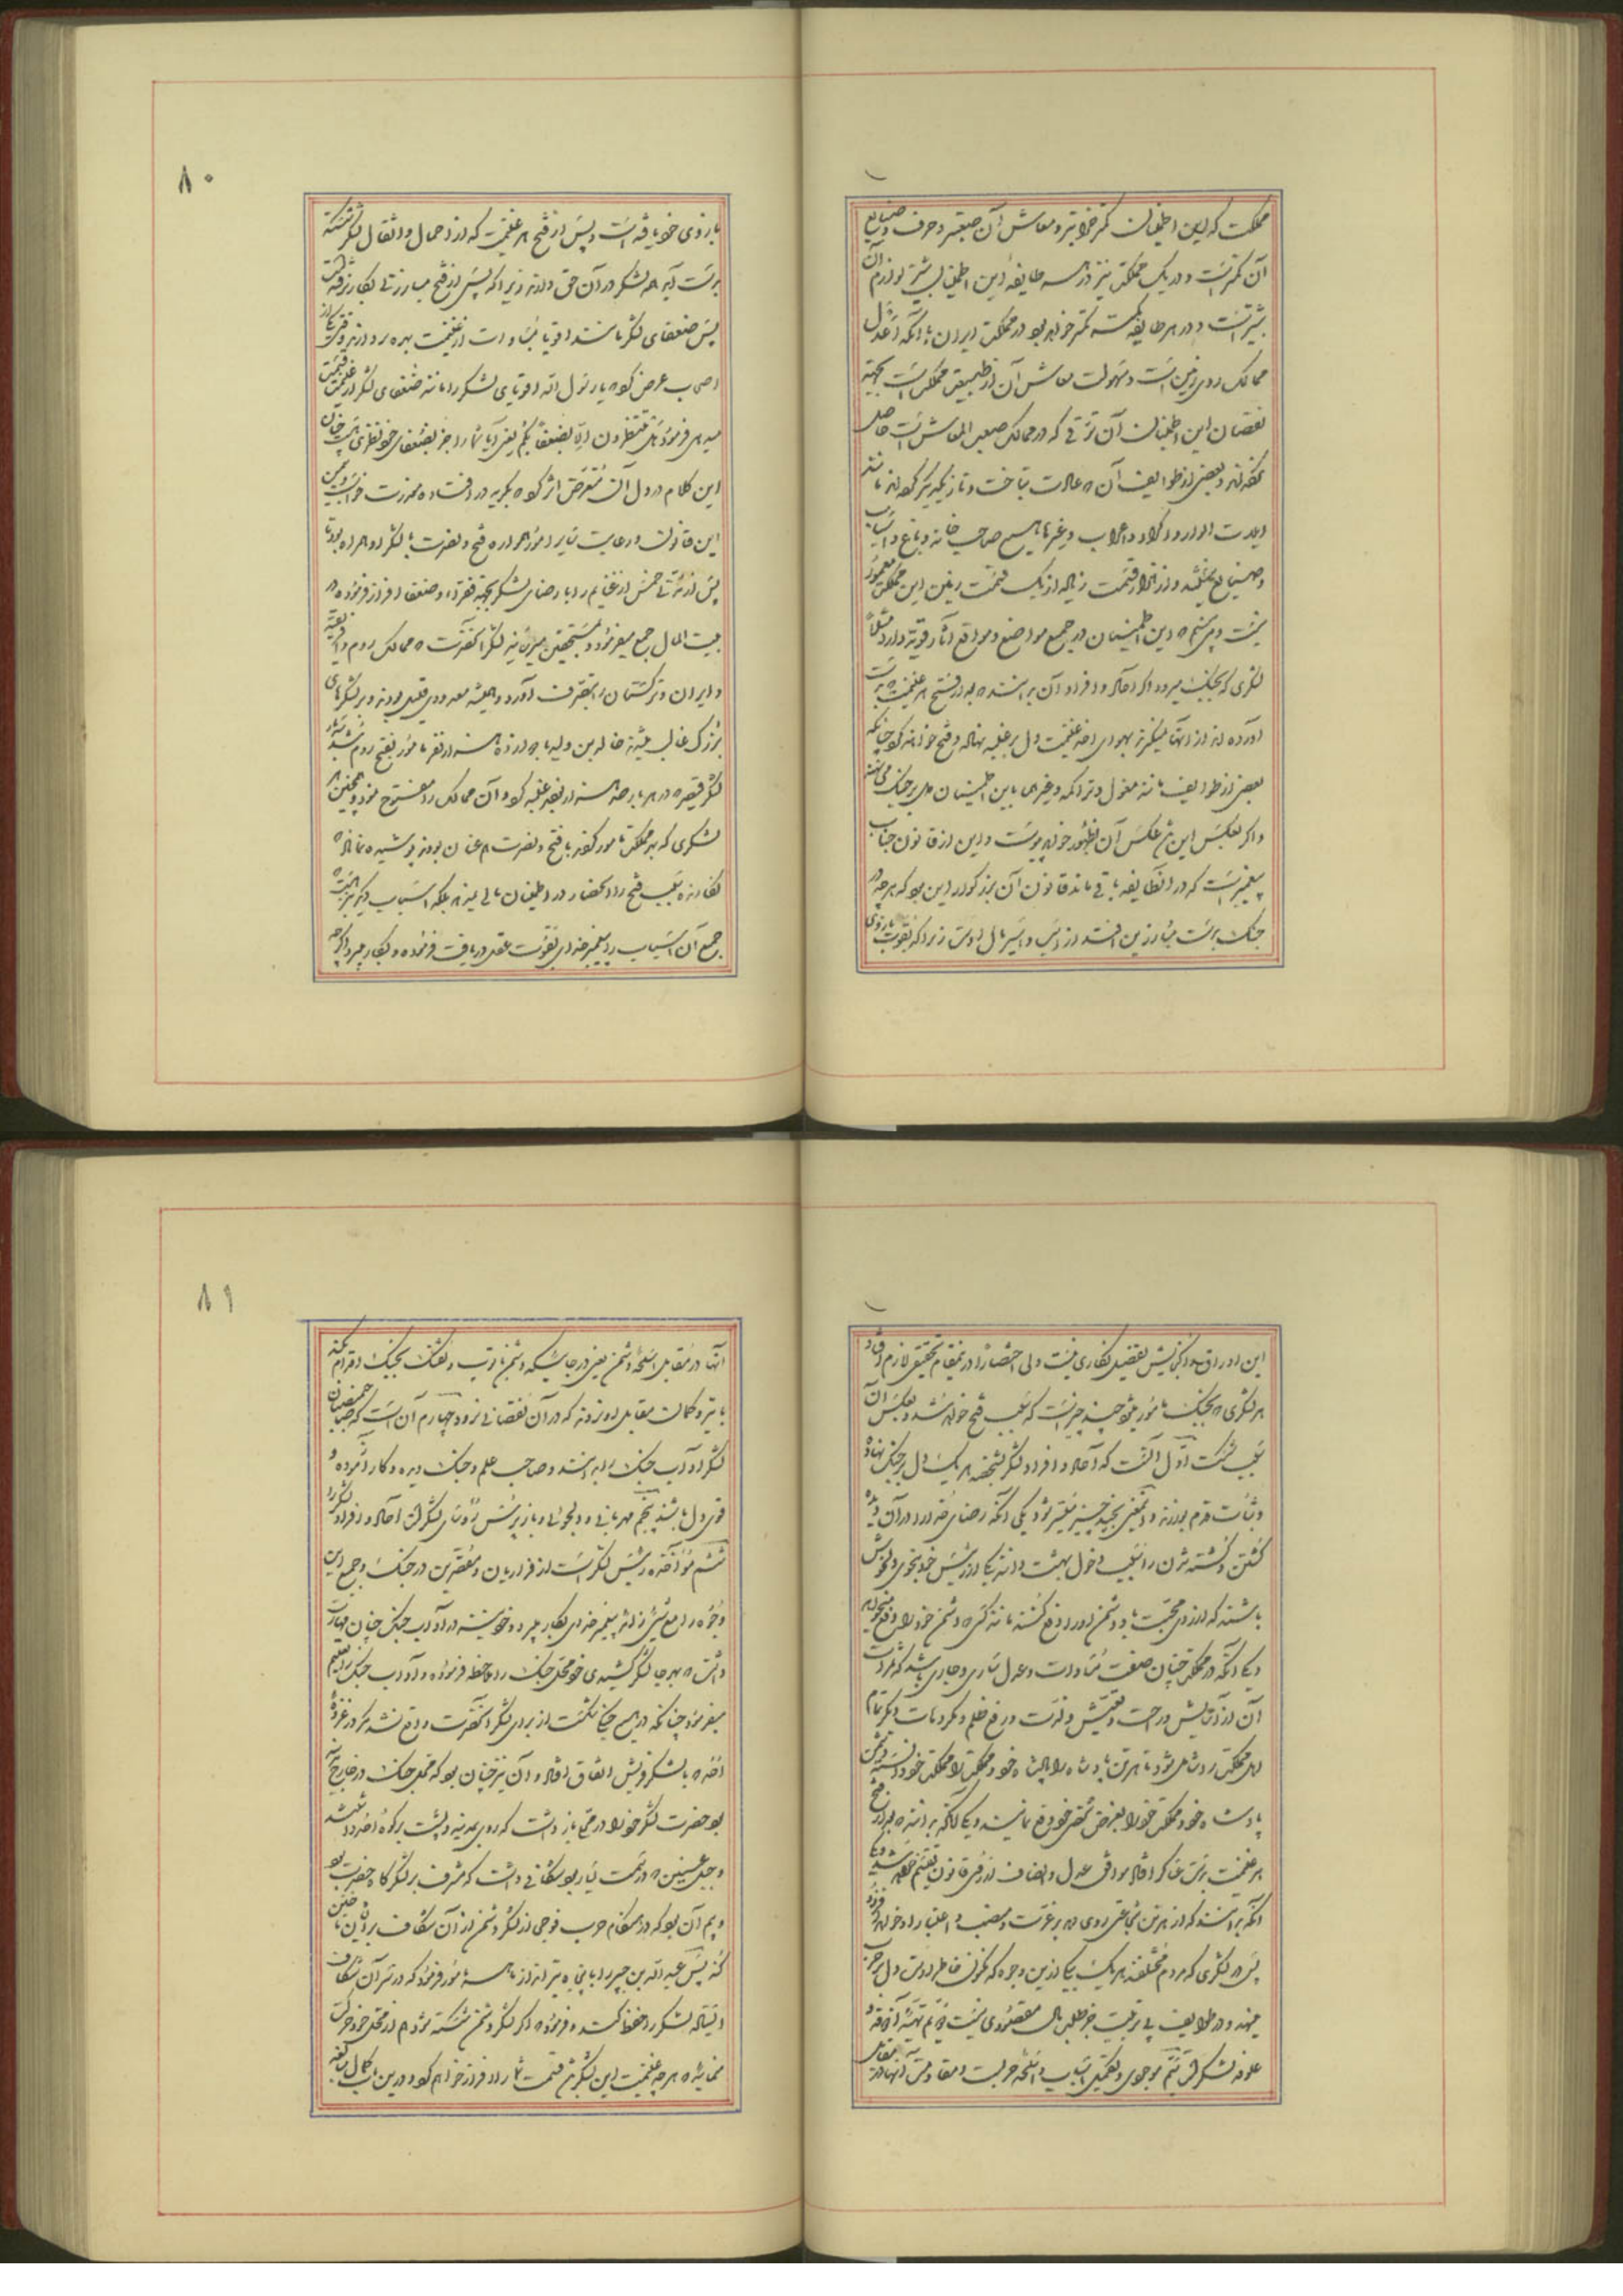 مملکت که این اطمینان کمتر خرابتر و معاش آن صعبتر و حرف و صنایع
آن کمتر است و در یک مملکت نیز در هر طایفه این اطمینان بیشتر لوازم آن
بیشتر است و در هر طایفه کمتر کمتر خواهد بود در مملکت ایران با آنکه اعدل
ممالک روی زمین است و سهولت معاش آن از طبیعت مملکت است بجهة
نقصان این اطمینان آن ترقی که در ممالک صعب المعاش است حاصل
نکرده‌اند و بعضی از طوایف آن عادت بتاخت و تاز یکدیگر کرده‌اند مانند
ایلات الوار و اکراد و اعراب و غیرها هیچ صاحب خانه و باغ و آسیاب
و صنایع نیستند و از هزار قسمت زیاده از یک قسمت زمین این مملکت معمور
نیست و این اطمینان در جمیع مواضع و مواقع آثار قویه دارد مثلاً
لشکری که بجنگ میرود اگر آحاد و افراد آن بدانند که بعد از فتح هر غنیمت بدست
آورده‌اند از آنها نمیگیرند بهوای اخذ غنیمت دل بر غلبه نهاده و فتح خواهند کرد چنانکه
بعضی از طوایف مانند مغول و تراکمه و غیرها باین اطمینان دل بر جنگ می‌نهند
و اگر بعکس این شد عکس آن بظهور خواهد پیوست و این از قانون جناب
پیغمبر است که در آن طایفه باقی مانده قانون آن بزرگوار این بود که هر چه در
جنگ بدست مبارزین افتد از اسب و اسیر مال اوست زیرا که بقوت بازوی
۸۰
بازوی خود یافته است و پس از فتح هر غنیمت که از احمال و اثقال لشکر شکسته
بدست آید همه لشکر در آن حق دارند زیرا که پس از فتح مبارزتی بکار نرفته است
پس ضعفای لشکر مانند اقویا بمساوات از غنیمت بهره بردارند وقتی یکی از
اصحاب عرض کرد یا رسول الله اقویای لشکر را مانند ضعفای لشکر از غنیمت قسمت
میدهی فرمود هل تنتظرون الا بضعفائکم یعنی آیا شما را جز بضعفای خود نظری هست چنان
این کلام در دل آن متعرض اثر کرد که بگریه در افتاد و معذرت خواست و بیمن
این قانون و رعایت سایر امور همواره فتح و نصرت با لشکر او همراه بود تا
پس از مدتی خمس از غنایم را با رضای لشکر بجهة فقراء و ضعفاء افراز فرموده در
بیت المال جمع میفرمود و بمستحقین میرسانید لشکر آنحضرت که ممالک روم و افریقیه
و ایران و ترکستان را بتصرف آورد همیشه معدودی قلیل بودند و بر لشکرهای
بزرگ غالب میشدند خالد بن ولید با چهارده هزار نفر مامور بفتح روم شد بسیار
لشکر قیصر در هر بار صد هزار نفر غلبه کرد و آن ممالک را مفتوح نمود و همچنین هر
لشکری که بهر مملکت مامور گردید با فتح و نصرت هم عنان بودند پوشیده نماناد که
نگارنده سبب فتح را انحصار در اطمینان مالی نمیداند بلکه اسباب دیگر نیز هست که
جمیع آن اسباب را پیغمبر خدای بقوت عقل دریافت فرموده و بکار میبرد اگر چه
این اوراق را گنجایش تفصیل نگاری نیست ولی اختصاراً در مقام تحقیق لازم افتاد
هر لشکری که بجنگ مامور میشود چند چیز است که سبب فتح خواهد شد و بعکس آن
سبب شکست اول آنست که آحاد و افراد لشکر بشخصه هر یک دل بر جنگ نهاده
و ثبات قدم بورزند و این معنی بچند چیز میسر شود یکی آنکه رضای خدا را در آن دیده
کشتن و کشته شدن را سبب دخول بهشت دانند یکی از رئیس خود بنحوی دلخوش
باشند که از روی محبت با دشمن او را دفع کنند مانند کسی که دشمن خود را دفع میخواهد
دیگر آنکه در مملکت چنان صفت مساوات و عدل ساری و جاری باشد که ثمرات
آن از آسایش و راحت و تعیش و لذت و رفع ظلم و مکروهات دیگر تمام
اهل مملکت را شامل شود تا هر تن پادشاه را پادشاه خود و مملکت را مملکت خود دانسته دشمن
پادشاه خود و مملکت خود را بغرض شخصی خود دفع نمایند دیگر آنکه بدانند که بعد از فتح
هر غنیمت بدست عساکر افتاد موافق عدل و انصاف از روی قانون تقسیم خواهد شد دیگر
آنکه بدانند که از هر تن شجاعتی روی دهد بر عزت و منصب و اعتبار او خواهد افزود
پس در لشکری که مردم مختلفند هر یک بیکی ازین وجوه که مکنون خاطر اوست دل بر حرب
مینهد و در طوایف بی تربیت جز طلب مال مقصودی نیست دویم تهیه آذوقه و
علوفه لشکر است سیم موجودی و تکمیل اسباب و اسلحه حرب است و مقاومت آنها در مقابل
۸۱
آنها در مقابل اسلحه دشمن یعنی در جائیکه دشمن با توپ و تفنگ بجنگ اقدام کند
با تیر و کمان مقابل نروند که در آن نقصانی نرود چهارم آن است که صاحبمنصبان
لشکر آداب جنگ را بدانند و صاحب علم و جنگ دیده و کار آزموده و
قوی دل باشند پنجم مهربانی و دلجوئی و بازپرسی رؤسای لشکر است آحاد و افراد لشکر را
ششم مؤاخذه رئیس لشکر است از فراریان و مقصرین در جنگ و جمیع این
وجوه را مع شیئی زائد پیغمبر خدای بکار میبرد و خویشتن در آداب جنگ چنان مهارت
داشت که بهر جا لشکر کشیدی خود محل جنگ را ملاحظه فرموده و آداب جنگ را تعلیم
میفرمود چنانکه در هیچ جنگی شکست از برای لشکر آنحضرت واقع نشد مگر در غزوه
احد که با لشکر قریش اتفاق افتاد و آن نیز چنان بود که محل جنگ در خارج مدینه
بود حضرت لشکر خود را در محلی باز داشت که روی بمدینه و پشت بر کوه احد داشتند
و جبل عینین که در سمت یسار بود شکافی داشت که مشرف بر لشکرگاه حضرت بود
و بیم آن بود که در هنگام حرب فوجی از لشکر دشمن از آن شکاف بر ایشان تاختن
کند پس عبدالله بن جبیر را با پنجاه تیرانداز مامور فرمود که در سر آن شکاف
ایستاده لشکر را حفظ کنند و فرمود که اگر لشکر دشمن شکسته شود هم از محل خود حرکت
ننمائید که هر چه غنیمت این لشکر شد قسمت شما را افراز خواهم کرد و درین باب کمال مبالغه